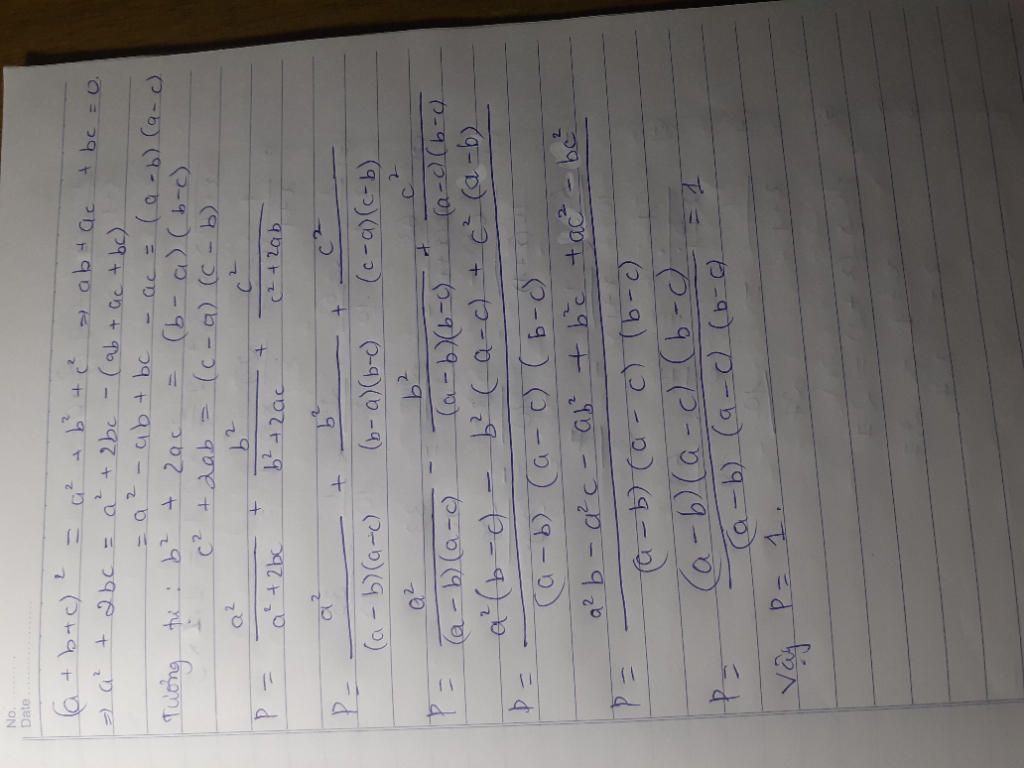 No.
Date
(a + b + c)² = a² + b² + c² ⇒ ab + ac + bc = 0
⇒ a² + 2bc = a² + 2bc - (ab + ac + bc)
= a² - ab + bc - ac = (a - b)(a - c)
Tương tự : b² + 2ac = (b - a)(b - c)
c² + 2ab = (c - a)(c - b)
P = a²/(a² + 2bc) + b²/(b² + 2ac) + c²/(c² + 2ab)
P = a²/((a - b)(a - c)) + b²/((b - a)(b - c)) + c²/((c - a)(c - b))
P = a²/((a - b)(a - c)) - b²/((a - b)(b - c)) + c²/((a - c)(b - c))
P = (a²(b - c) - b²(a - c) + c²(a - b))/((a - b)(a - c)(b - c))
P = (a²b - a²c - ab² + b²c + ac² - bc²)/((a - b)(a - c)(b - c))
P = ((a - b)(a - c)(b - c))/((a - b)(a - c)(b - c)) = 1
Vậy P = 1.